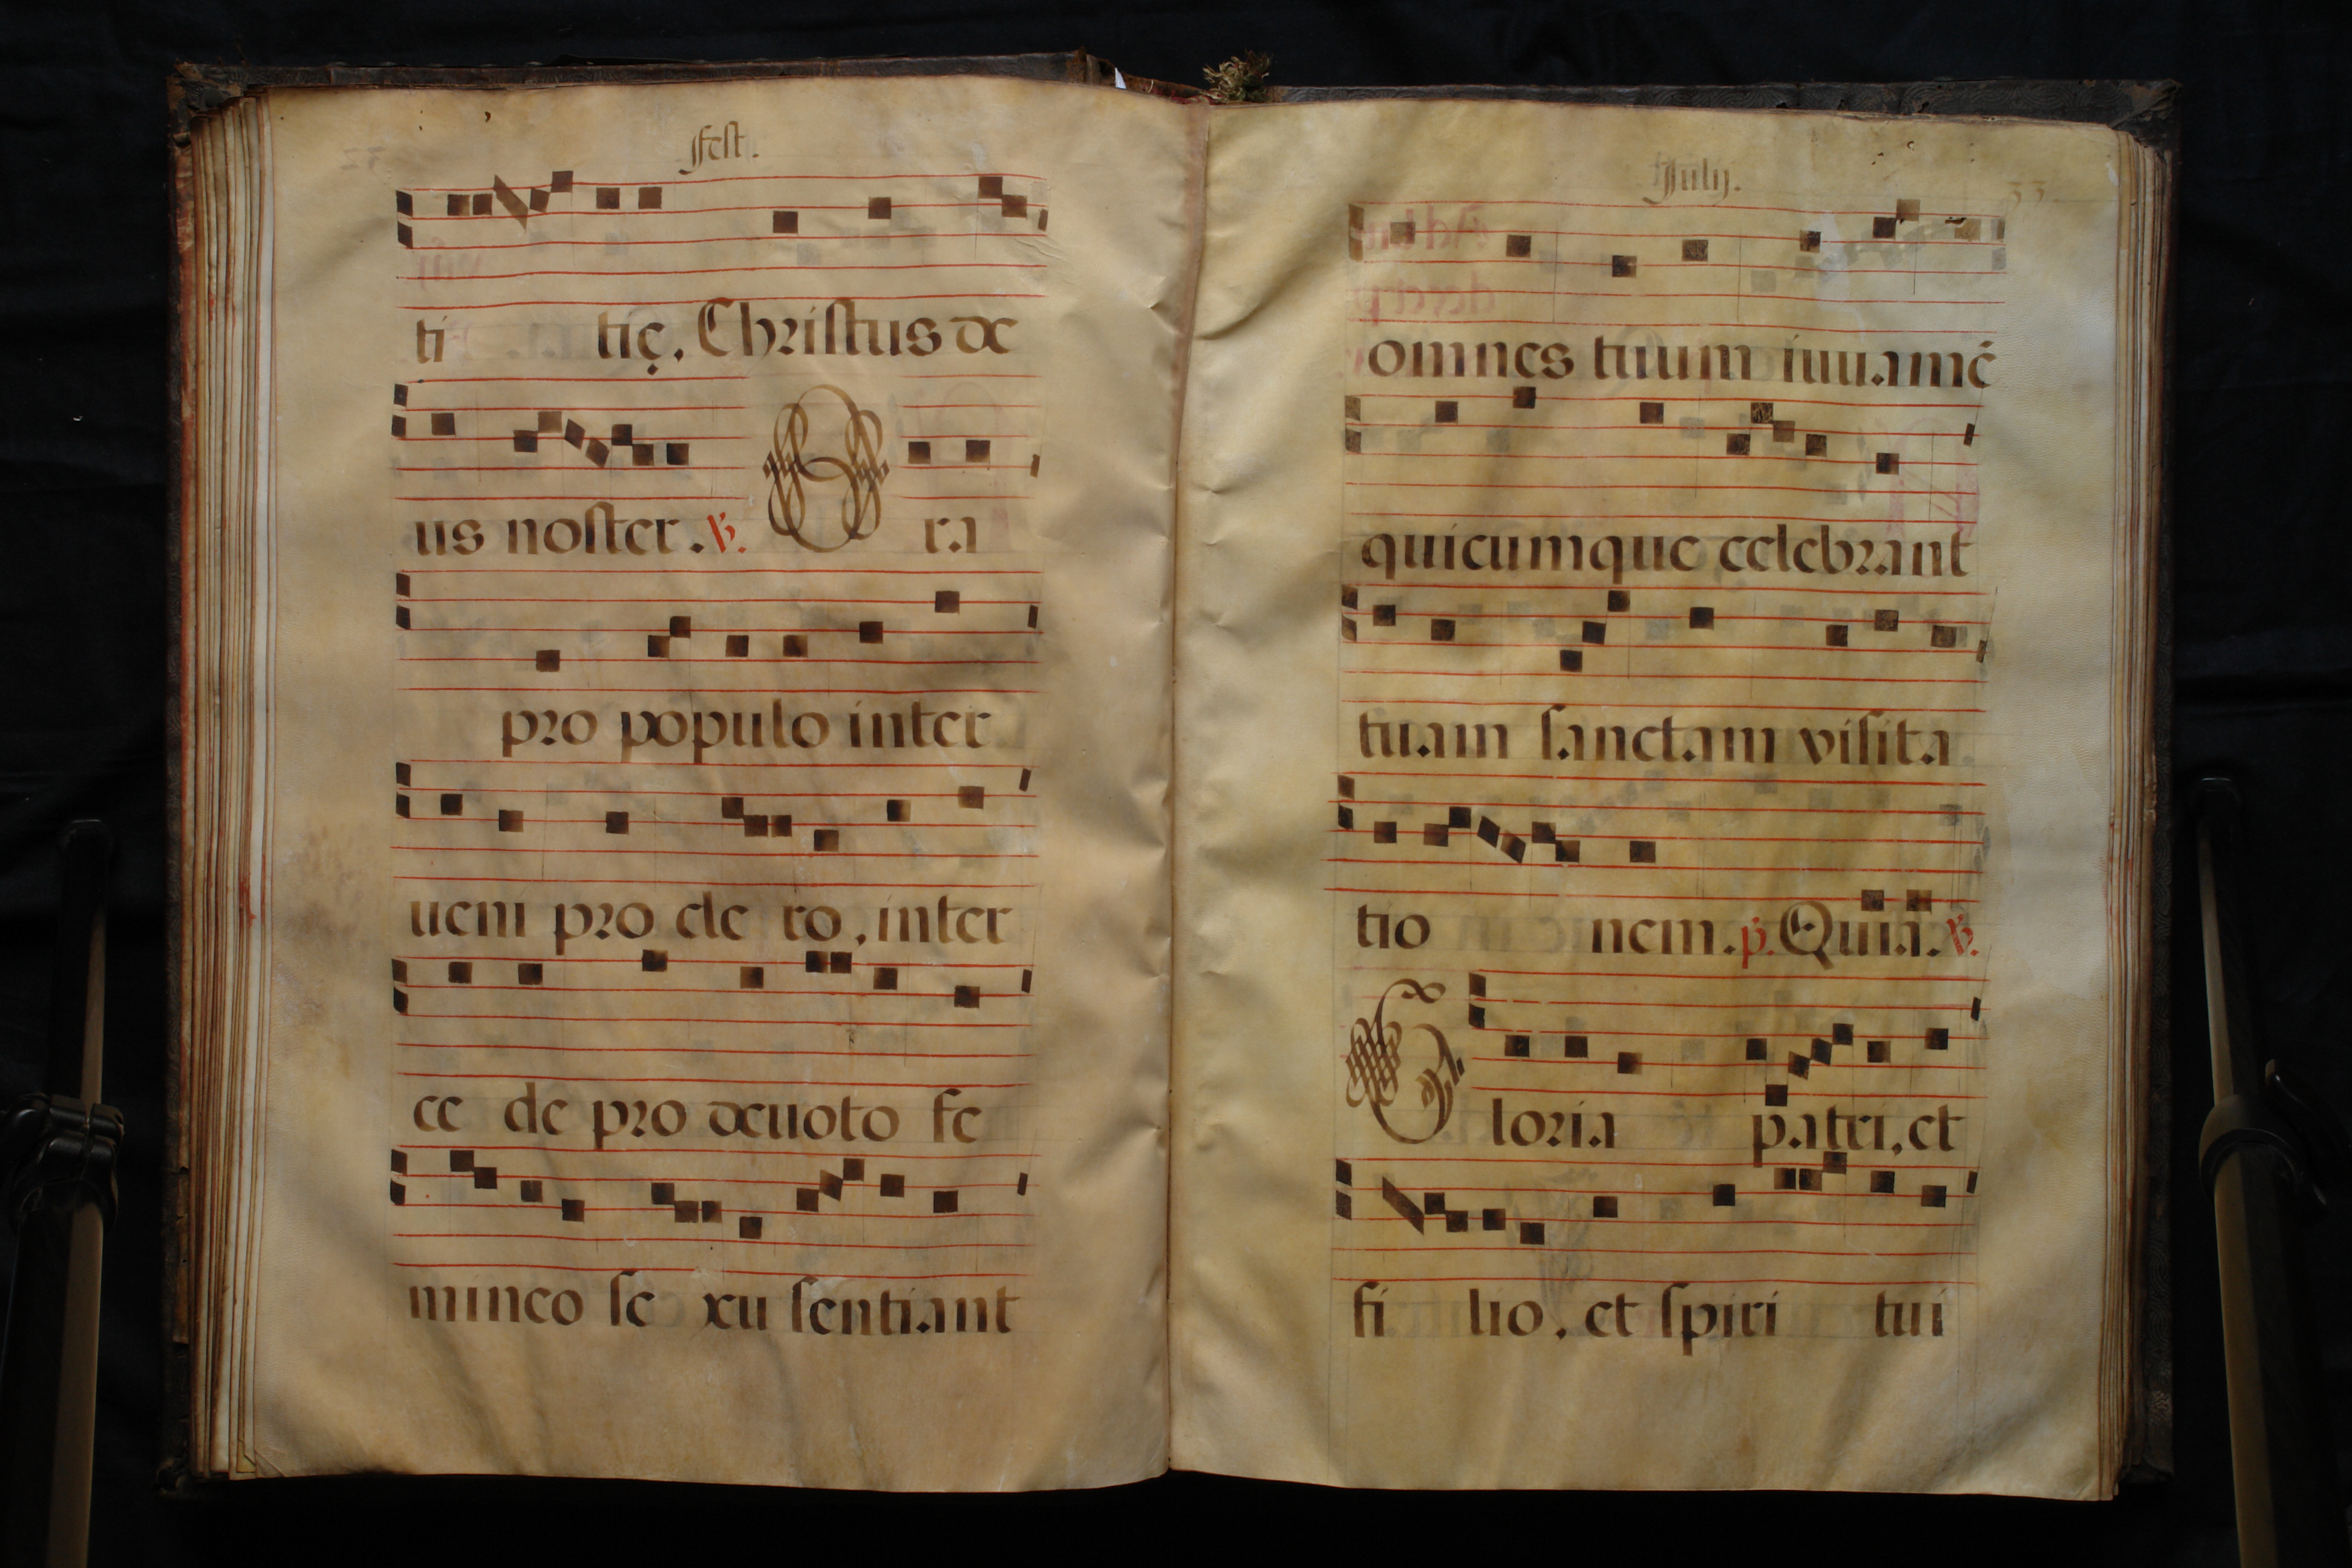 fest.
ti tię. Christus de
us noster. ℣. Ora
pro populo inter
ueni pro cle ro, inter
ce de pro deuoto fe
mineo se xu sentiant
July. 33
omnes tuum iuuamē
quicumque celebrant
tuam sanctam visita
tio nem. p. Quia. ℣.
Gloria patri, et
fi lio, et spiri tui